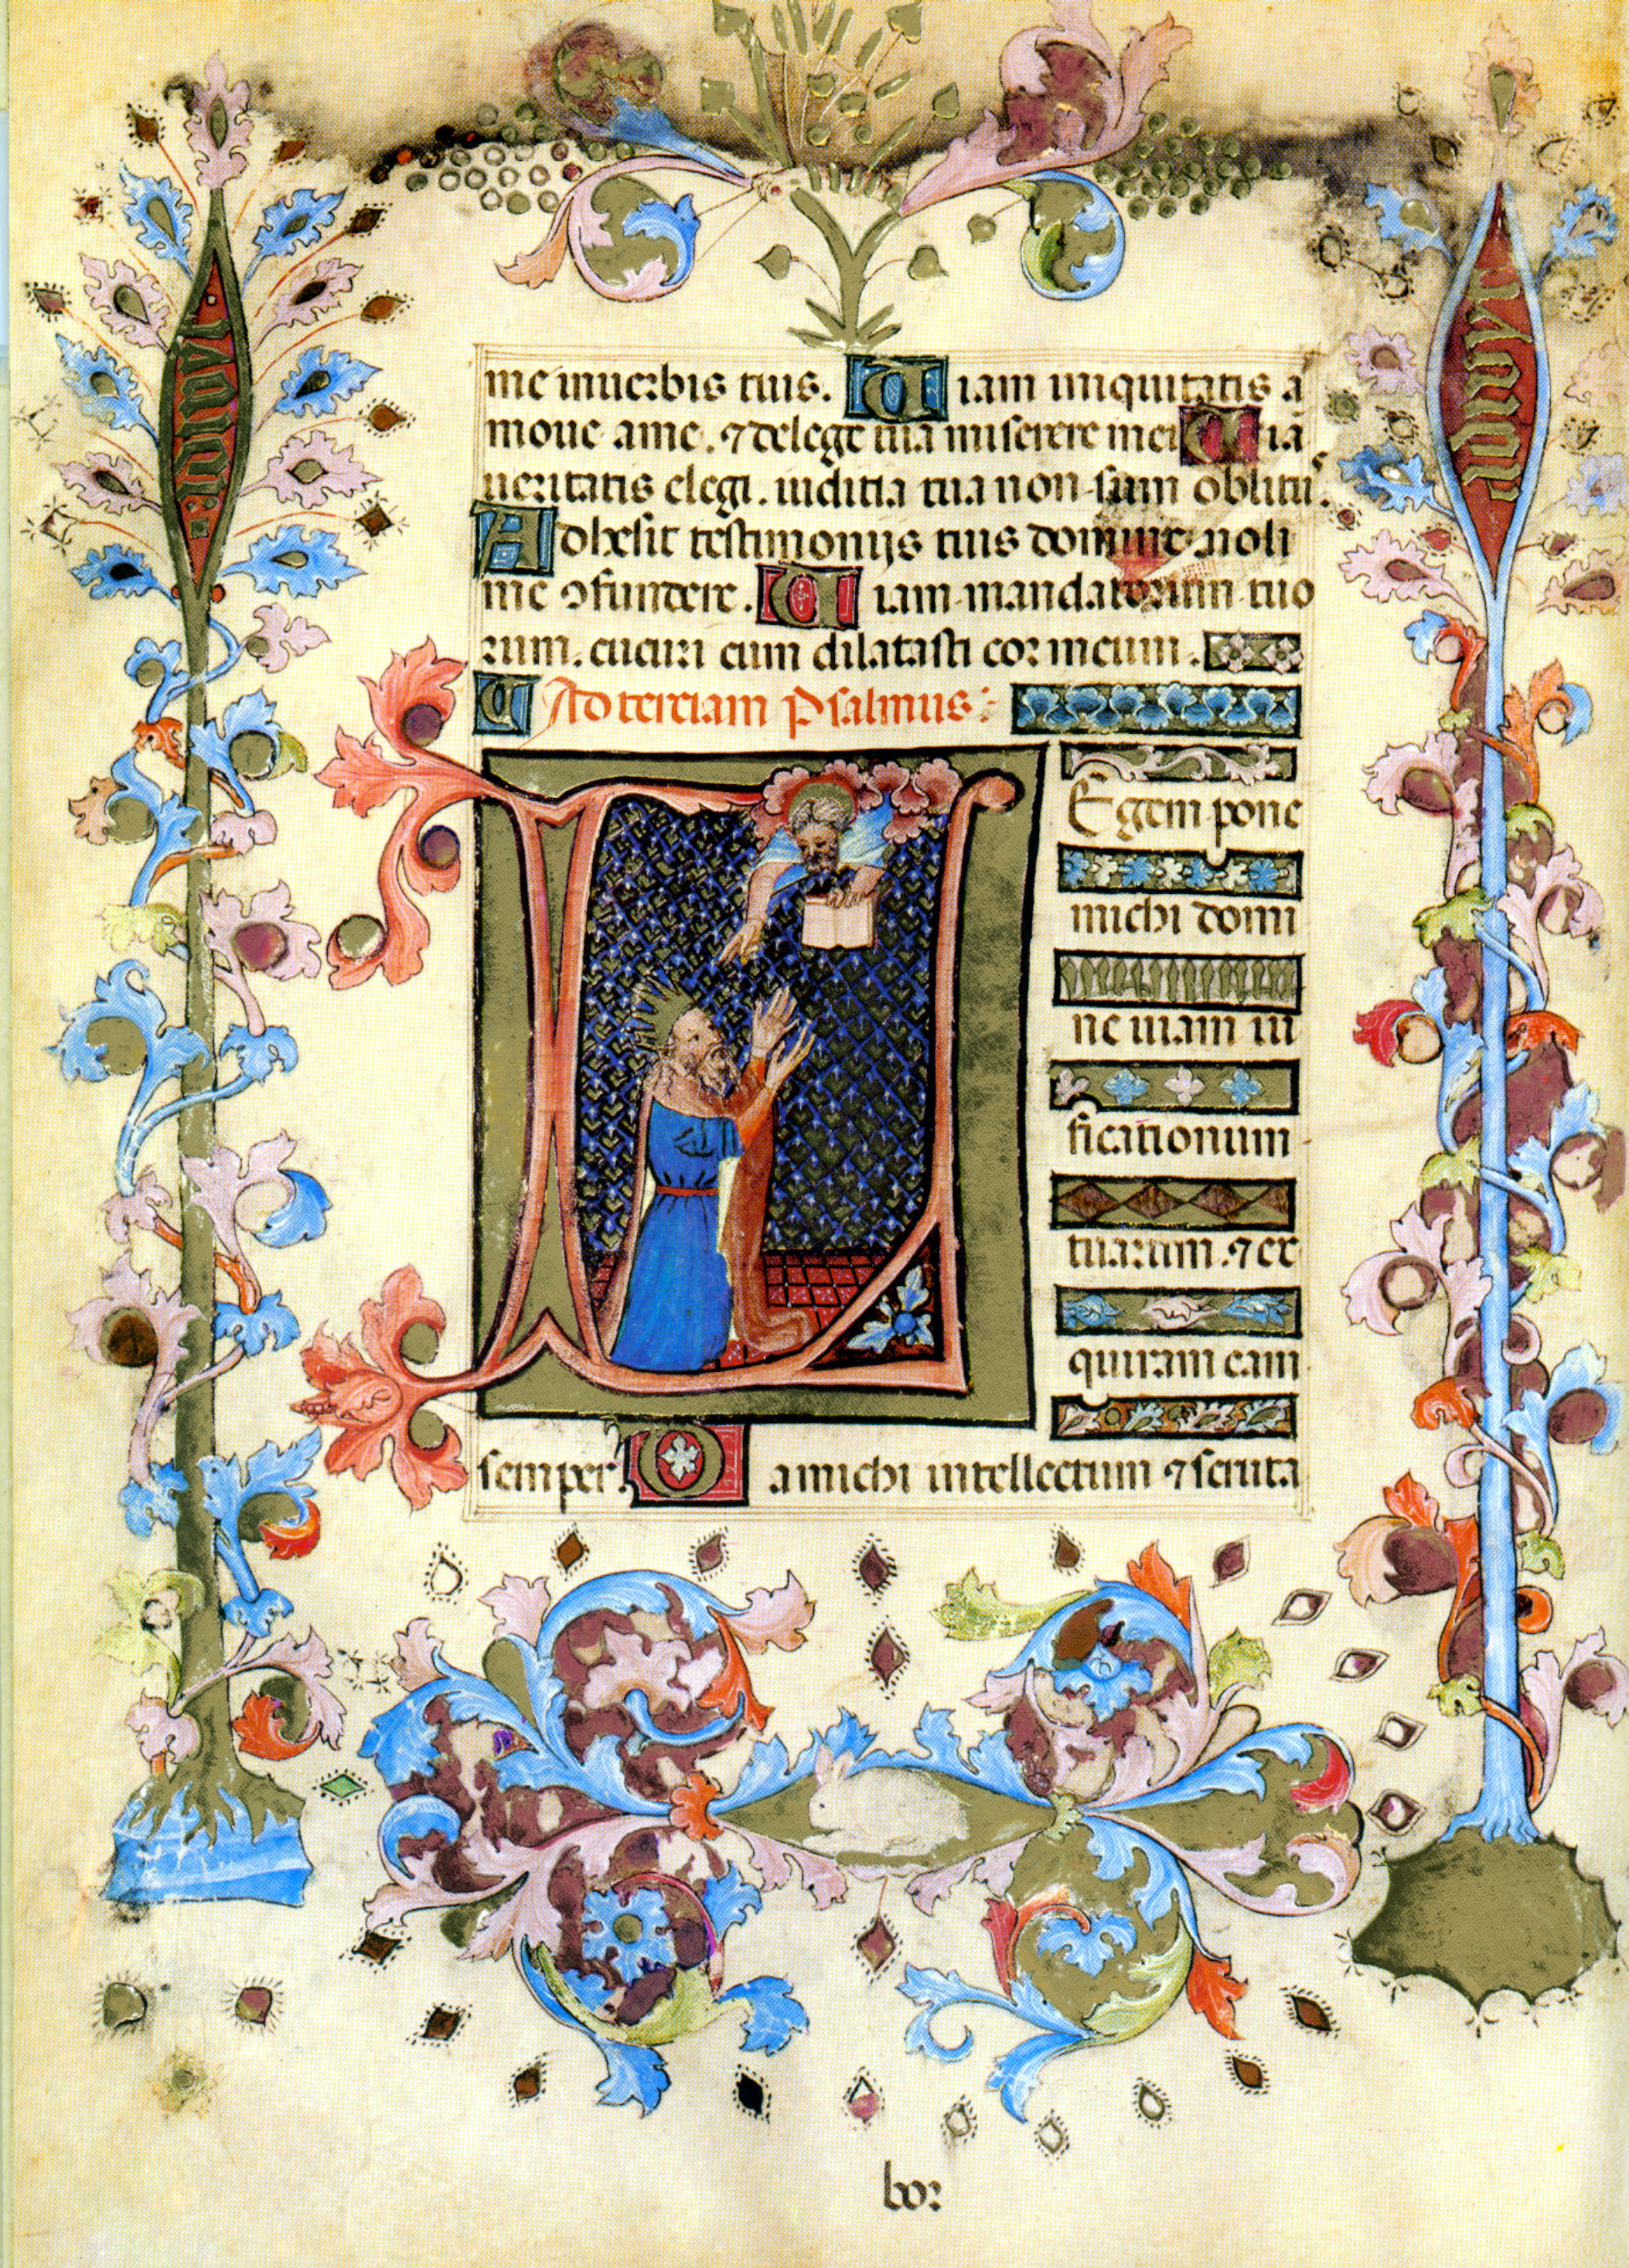 me inuerbis tuis. Uiam iniquitatis a
moue ame. ⁊delege tua miserere mei Uiā
ueritatis elegi. iuditia tua non sum oblitus.
Adhesit testimonijs tuis domine noli
me ꝯfundere. Uiam mandatorum tuo
rum. cucuri cum dilatasti cor meum.
Ad terciam Psalmus:
LEgem pone
michi domi
ne uiam iu
ficationum
tuarum. ⁊ex
quiram eam
semper. Da michi intellectum ⁊scruta
bor